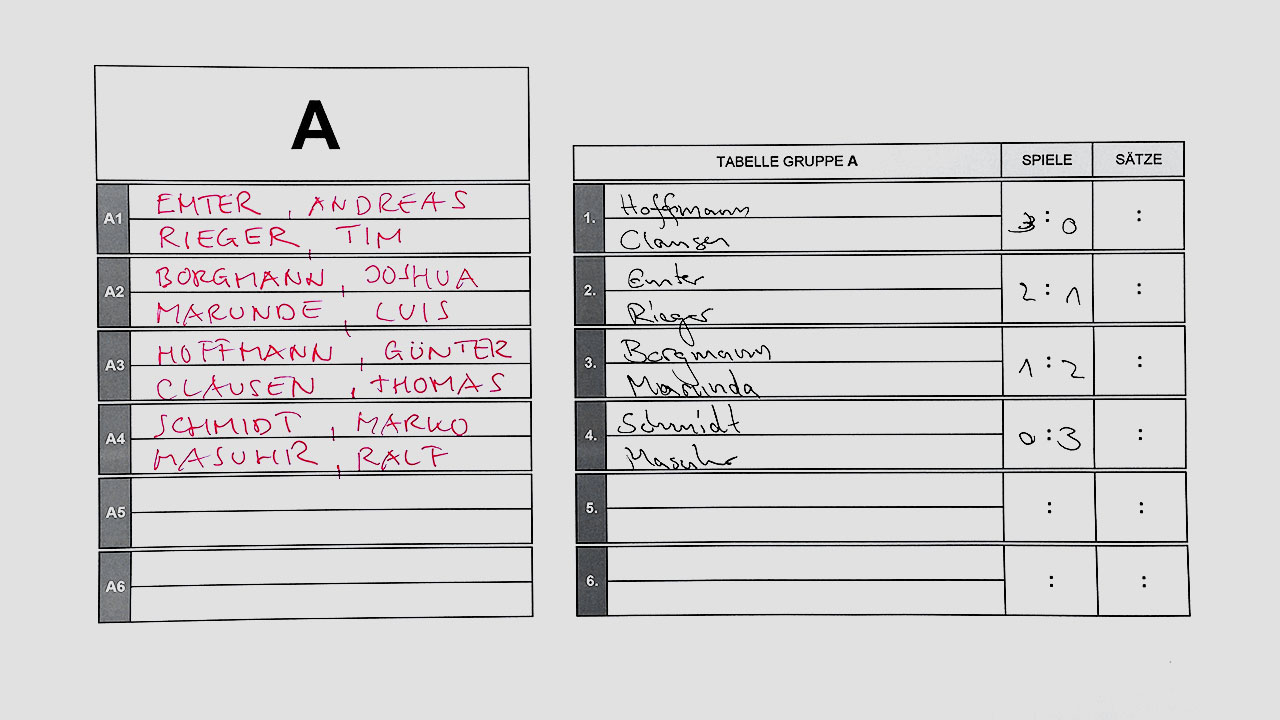 A
A1 EMTER, ANDREAS
RIEGER, TIM
A2 BORGMANN, JOSHUA
MARUNDE, LUIS
A3 HOFFMANN, GÜNTER
CLAUSEN, THOMAS
A4 SCHMIDT, MARKO
MASUHR, RALF
A5
A6
TABELLE GRUPPE A SPIELE SÄTZE
1. Hoffmann 3:0 :
Clausen
2. Emter 2:1 :
Rieger
3. Borgmann 1:2 :
Marunda
4. Schmidt 0:3 :
Masuhr
5. : :
6. : :